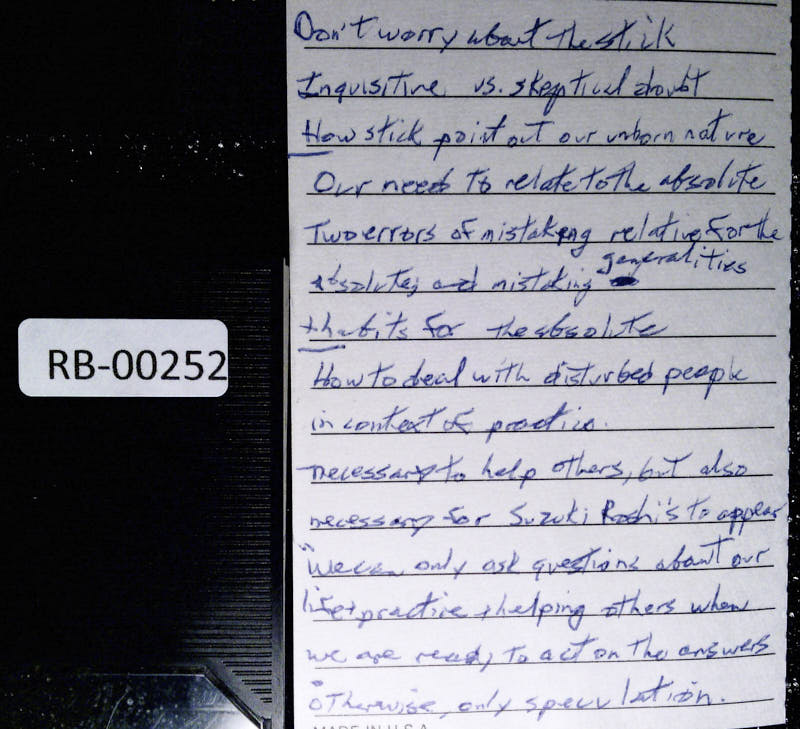 Don't worry about the stick
Inquisitive vs. skeptical doubt
How stick point out our unborn nature
Our need to relate to the absolute
Two errors of mistaking relative for the
absolute; and mistaking generalities
+ habits for the absolute
How to deal with disturbed people
in context of practice.
necessary to help others, but also
necessary for Suzuki Roshi's to appear
"We can only ask questions about our
life + practice + helping others when
we are ready to act on the answers
otherwise, only speculation.
RB-00252
MADE IN U.S.A.